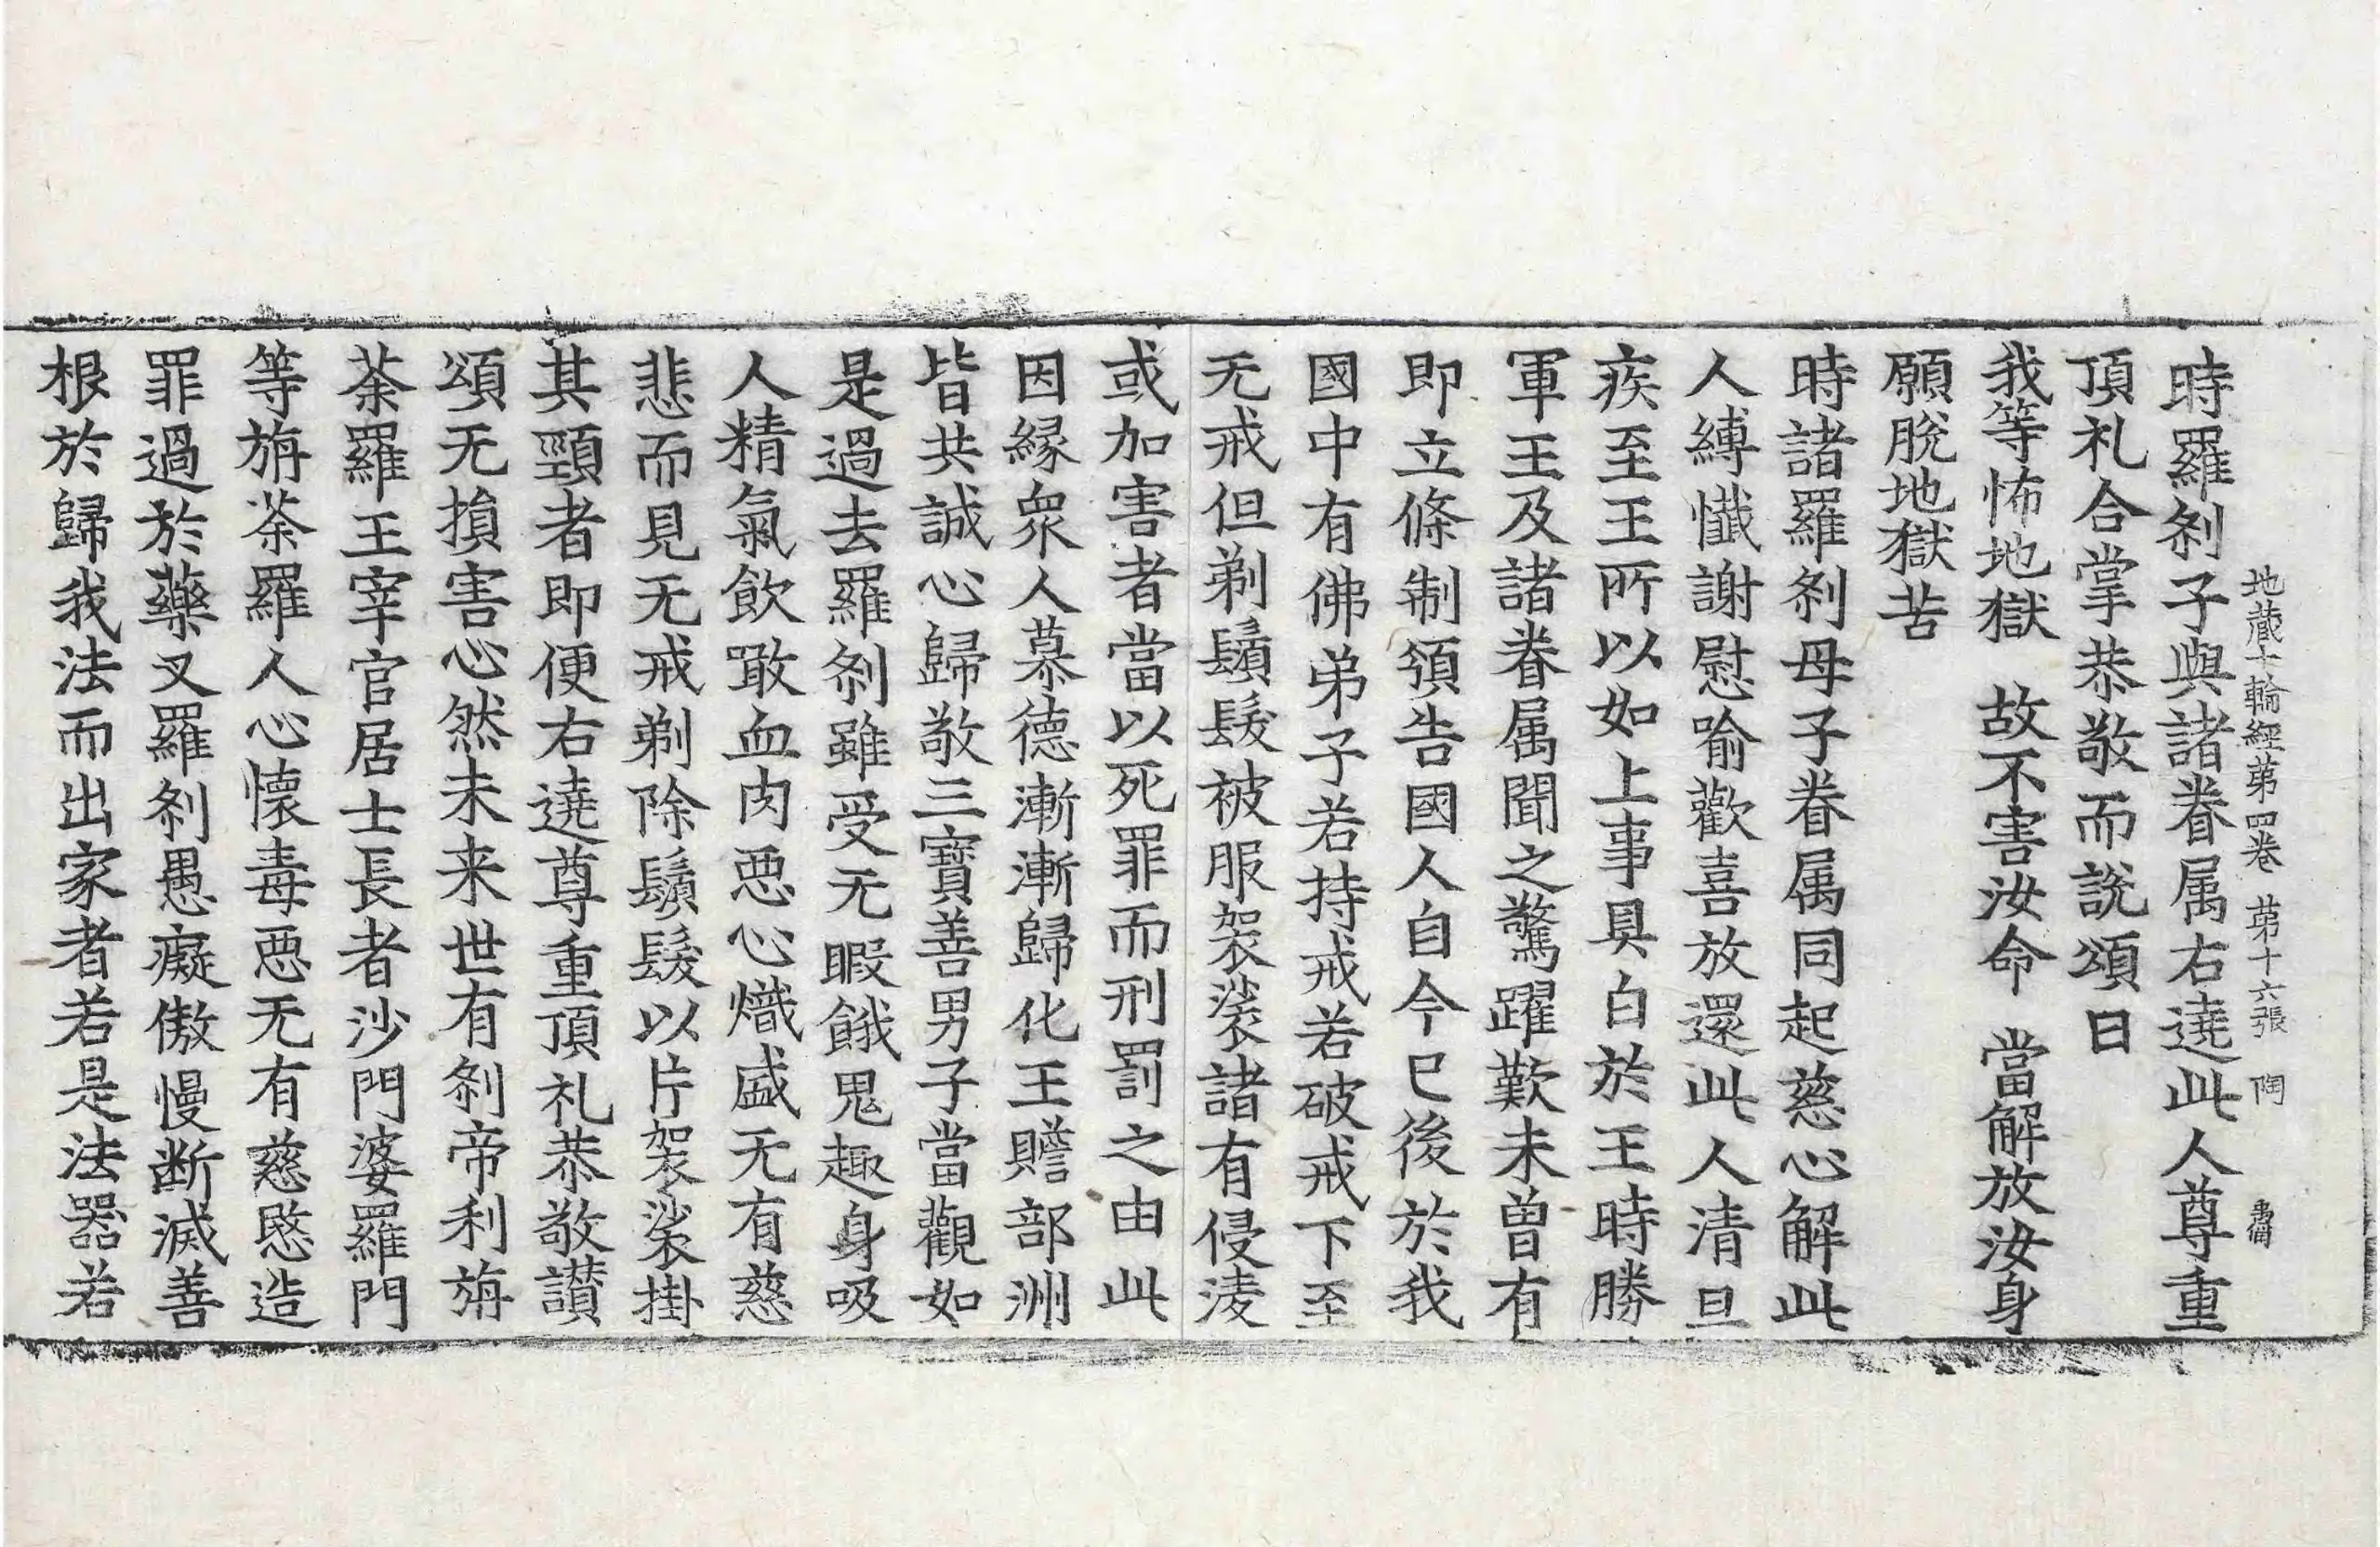 地藏十輪經第四卷 第十六張 陶
時羅刹子與諸眷属右遶此人尊重
頂礼合掌恭敬而說頌曰
我等怖地獄 故不害汝命 當解放汝身
願脫地獄苦
時諸羅刹母子眷属同起慈心解此
人縛懺謝慰喻歡喜放還此人清旦
疾至王所以如上事具白於王時勝
軍王及諸眷属聞之驚躍歎未曾有
即立條制頒告國人自今已後於我
國中有佛弟子若持戒若破戒下至
无戒但剃鬚髮被服袈裟諸有侵淩
或加害者當以死罪而刑罰之由此
因緣衆人慕德漸漸歸化王贍部洲
皆共誠心歸敬三寶善男子當觀如
是過去羅刹雖受无暇餓鬼趣身吸
人精氣飲噉血肉惡心熾盛无有慈
悲而見无戒剃除鬚髮以片袈裟掛
其頸者即便右遶尊重頂礼恭敬讃
頌无損害心然未来世有刹帝利旃
荼羅王宰官居士長者沙門婆羅門
等旃荼羅人心懷毒惡无有慈愍造
罪過於藥叉羅刹愚癡傲慢斷滅善
根於歸我法而出家者若是法器若